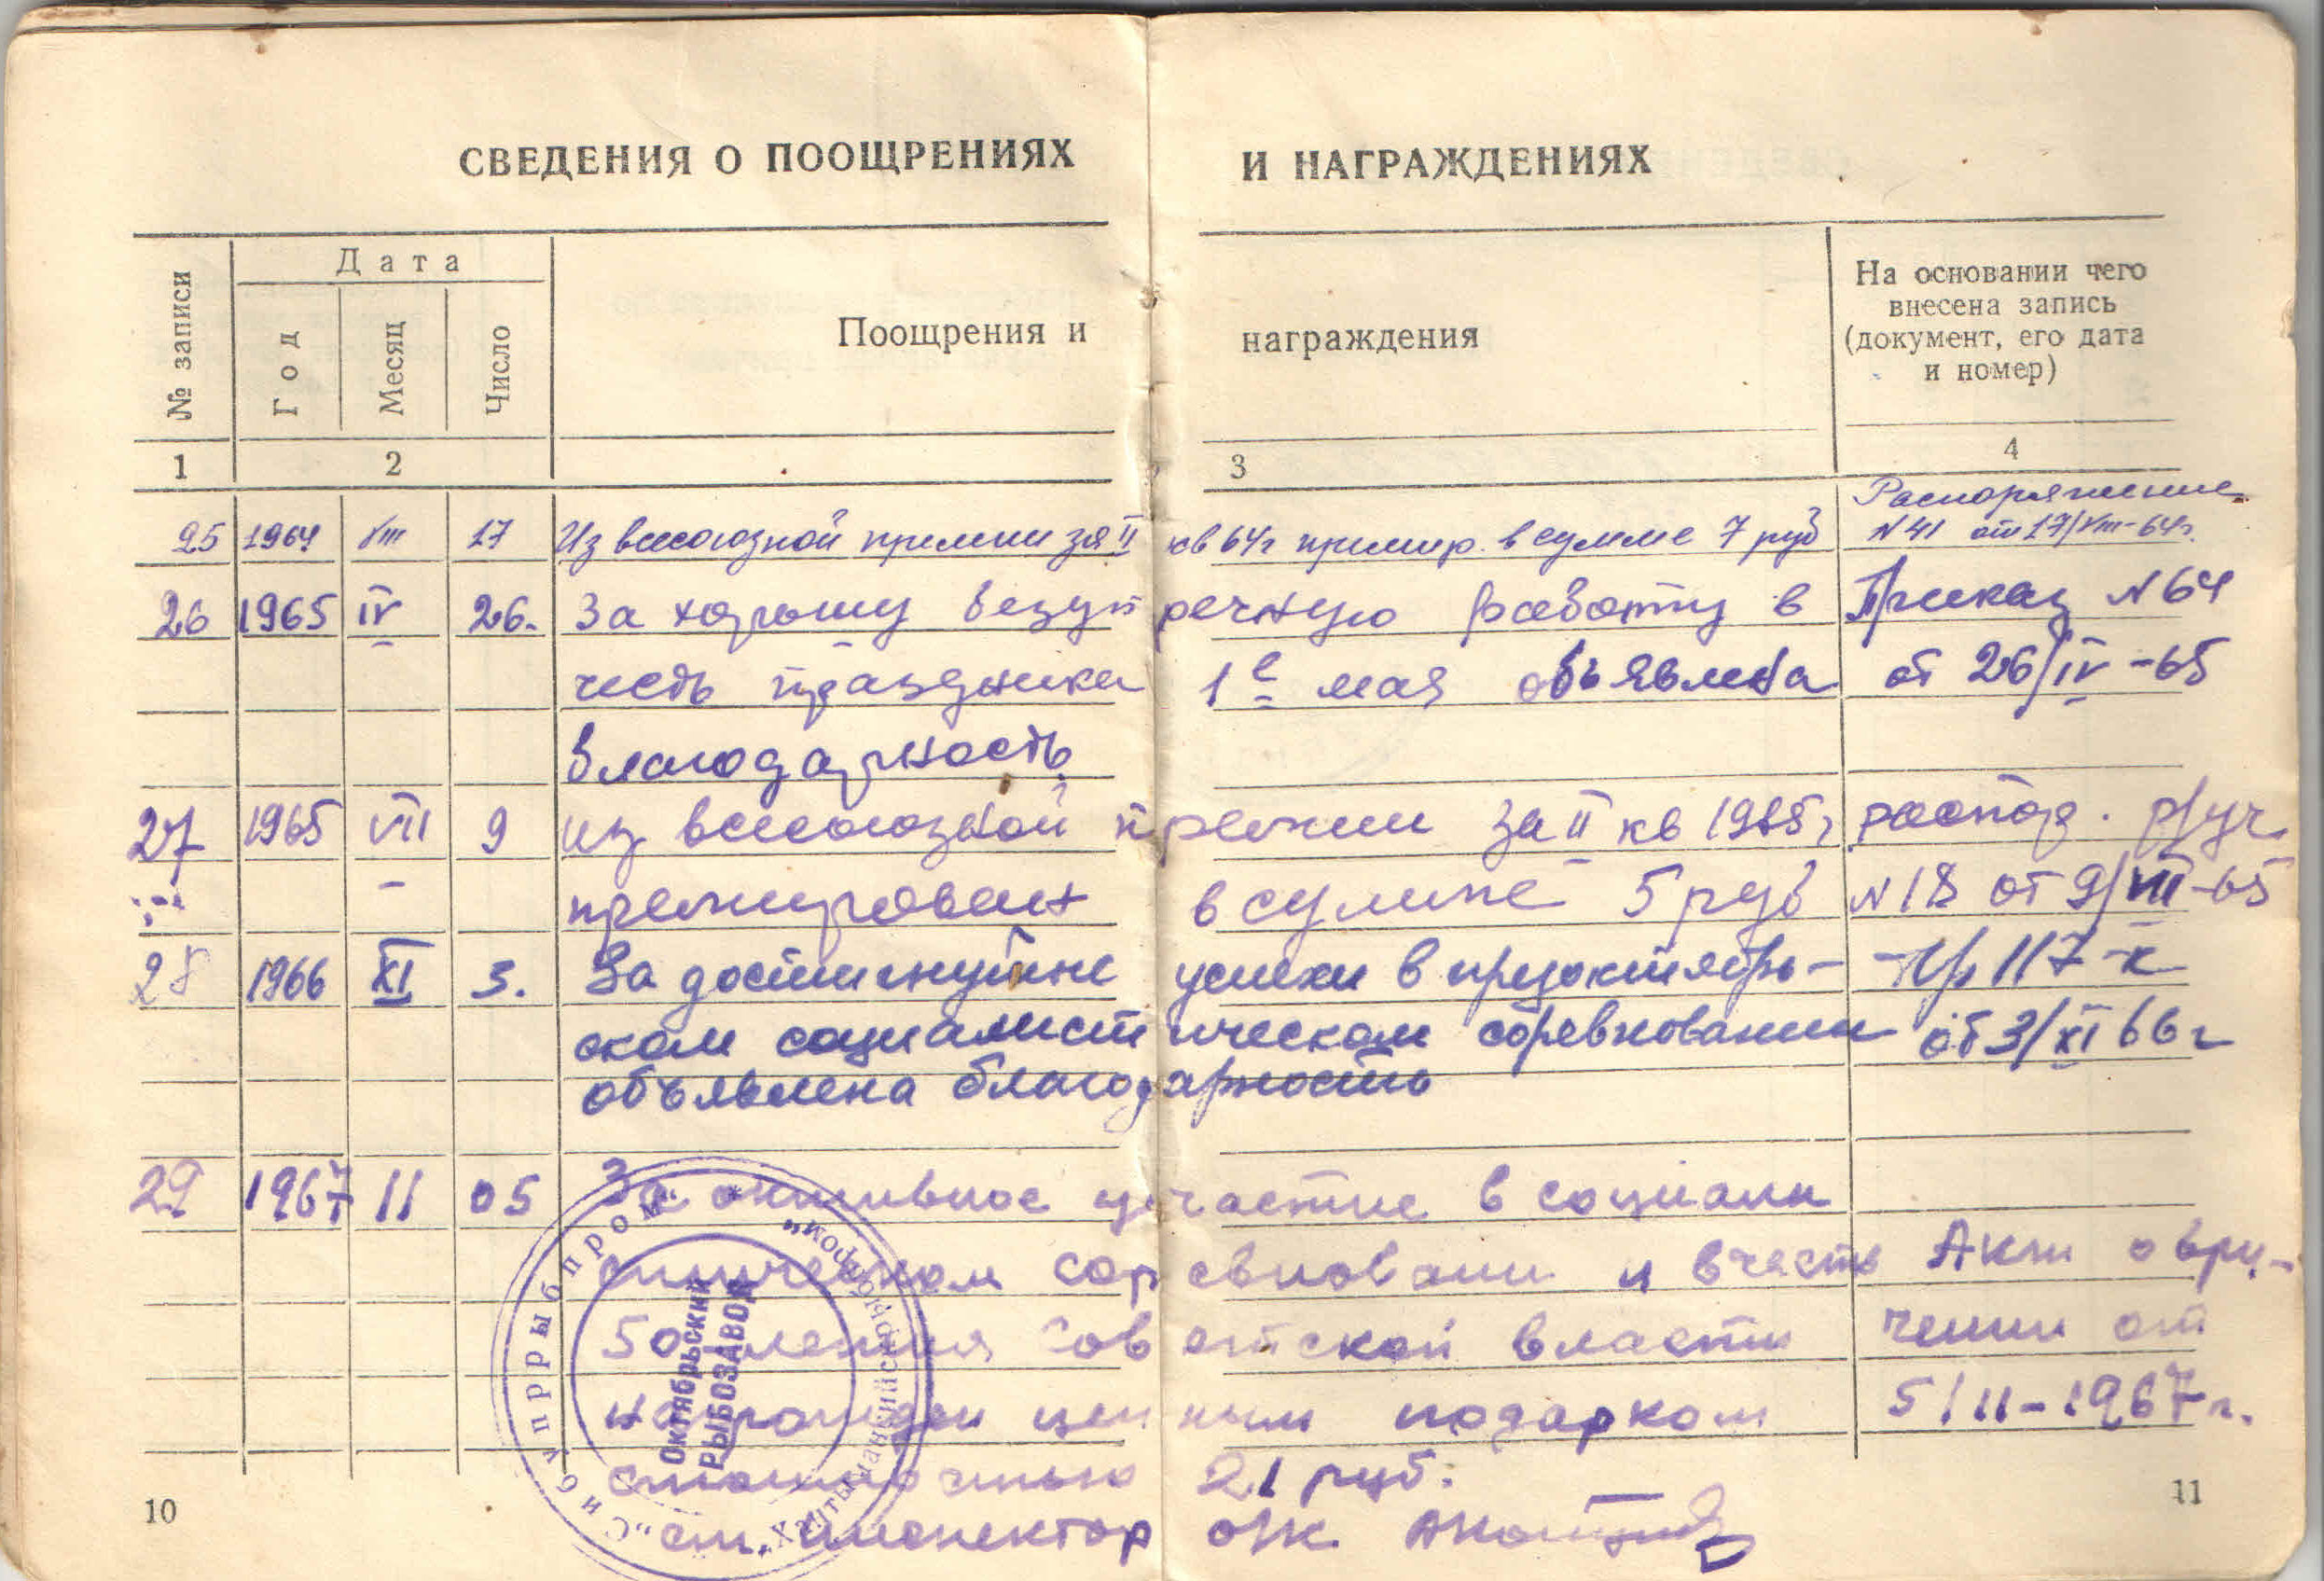 СВЕДЕНИЯ О ПООЩРЕНИЯХ И НАГРАЖДЕНИЯХ
№ записи
Дата
Год
Месяц
Число
Поощрения и награждения
На основании чего
внесена запись
(документ, его дата
и номер)
1 2 3 4
Распоряжение
25 1964 VIII 17 Из всесоюзной премии за II кв 64г премир. в сумме 7 руб N 41 от 17/VIII-64г.
26 1965 IV 26. За хорошу безупречную работу в Приказ N 64
честь праздника 1е мая объявлена от 26/IV-65
благодарность
27 1965 VII 9 из всесоюзной премии за II кв 1965г распор. р/уч.
премирован в сумме 5 руб N 18 от 9/VII-65
28 1966 XI 3. За достигнутые успехи в предоктябрь- Пр 117-к
ском социалистическом соревновании от 3/XI 66г
объявлена благодарность
29 1967 11 05 За активное участие в социали
стическом соревновании и в честь Акт о вру-
50 летия Советской власти чении от
награжден ценным подарком 5/11-1967г.
стоимостью 21 руб.
ст. инспектор о/к
"Сибупррыбпром"
"Ханты-Мансийскрыбпром"
Октябрьский
РЫБОЗАВОД
10 11